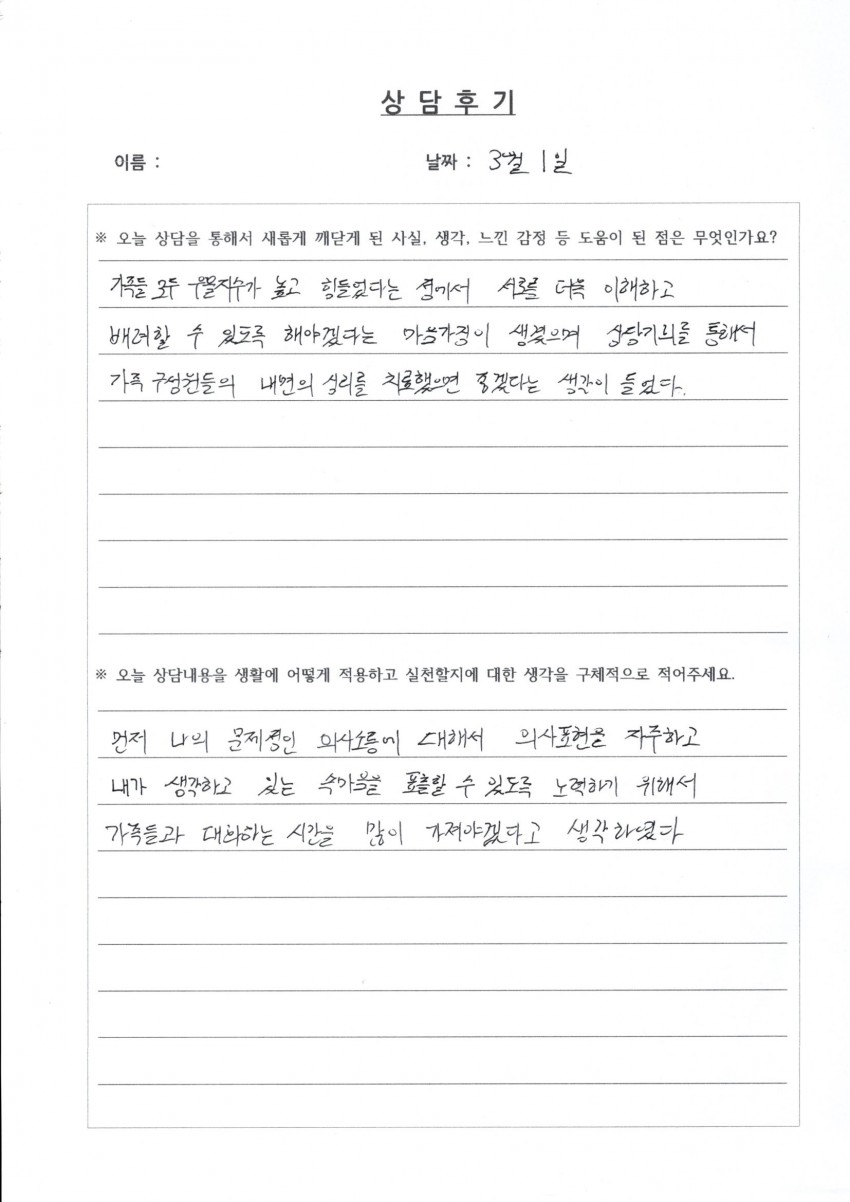 상 담 후 기
이름 :
날짜 : 3월 1일
※ 오늘 상담을 통해서 새롭게 깨닫게 된 사실, 생각, 느낀 감정 등 도움이 된 점은 무엇인가요?
가족들 모두 우울지수가 높고 힘들었다는 점에서 서로를 더욱 이해하고
배려할 수 있도록 해야겠다는 마음가짐이 생겼으며 상담치료를 통해서
가족 구성원들의 내면의 심리를 치료했으면 좋겠다는 생각이 들었다.
※ 오늘 상담내용을 생활에 어떻게 적용하고 실천할지에 대한 생각을 구체적으로 적어주세요.
먼저 나의 문제점인 의사소통에 대해서 의사표현을 자주하고
내가 생각하고 있는 속마음을 표출할 수 있도록 노력하기 위해서
가족들과 대화하는 시간을 많이 가져야겠다고 생각하였다